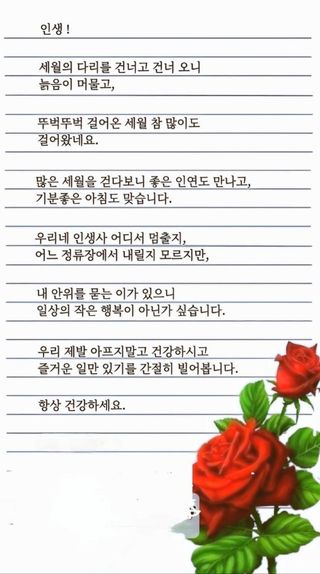 인생 !
세월의 다리를 건너고 건너 오니
늙음이 머물고,
뚜벅뚜벅 걸어온 세월 참 많이도
걸어왔네요.
많은 세월을 걷다보니 좋은 인연도 만나고,
기분좋은 아침도 맞습니다.
우리네 인생사 어디서 멈출지,
어느 정류장에서 내릴지 모르지만,
내 안위를 묻는 이가 있으니
일상의 작은 행복이 아닌가 싶습니다.
우리 제발 아프지말고 건강하시고
즐거운 일만 있기를 간절히 빌어봅니다.
항상 건강하세요.